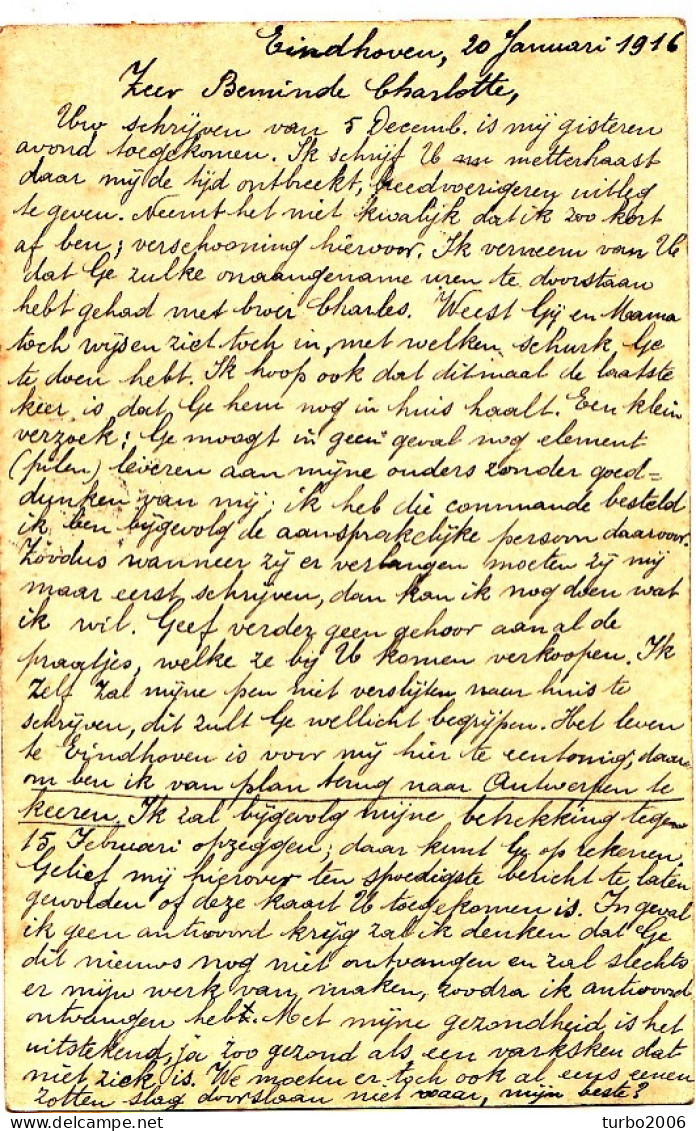 Eindhoven, 20 Januari 1916
Zeer Beminde Charlotte,
Uw schrijven van 5 Decemb. is mij gisteren
avond toegekomen. Ik schrijf U nu metterhaast
daar mij de tijd ontbreekt, breedvoerigeren uitleg
te geven. Neemt het niet kwalijk dat ik zoo kort
af ben; verschooning hiervoor. Ik verneem van U
dat Ge zulke onaangename uren te doorstaan
hebt gehad met broer Charles. Weest Gij en Mama
toch wijs en ziet toch in, met welken schurk Ge
te doen hebt. Ik hoop ook dat ditmaal de laatste
keer is dat Ge hem nog in huis haalt. Een klein
verzoek: Ge moogt in geen geval nog element
(pilen) leveren aan mijne ouders zonder goed=
dunken van mij; ik heb die commande besteld
ik ben bijgevolg de aansprakelijke persoon daarvoor.
Zoodus wanneer zij er verlangen moeten zij mij
maar eerst schrijven, dan kan ik nog doen wat
ik wil. Geef verder geen gehoor aan al de
praatjes, welke ze bij U komen verkoopen. Ik
zelf zal mijne pen niet verslijten naar huis te
schrijven, dit zult Ge wellicht begrijpen. Het leven
te Eindhoven is voor mij hier te eentonig, daar
om ben ik van plan terug naar Antwerpen te
keeren. Ik zal bijgevolg mijne betrekking tegen
15 Februari opzeggen; daar kunt Ge op rekenen.
Gelief mij hierover ten spoedigste bericht te laten
geworden of deze kaart U toegekomen is. In geval
ik geen antwoord krijg zal ik denken dat Ge
dit nieuws nog niet ontvangen en zal slechts
er mijn werk van maken, zoodra ik antwoord
ontvangen heb. Met mijne gezondheid is het
uitstekend, ja zoo gezond als een varksken dat
niet ziek is. We moeten er toch ook al eens eenen
zotten slag doorslaan niet waar, mijn beste?
turbo2006